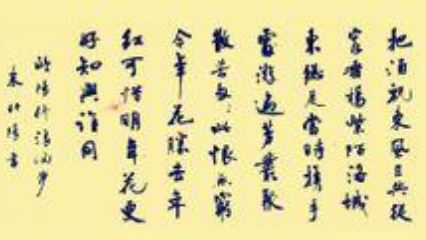 把酒祝東風且共從
容垂楊紫陌洛城
東總是當時攜手
處游遍芳叢聚
散苦匆匆此恨無窮
今年花勝去年
紅可惜明年花更
好知與誰同
歐陽修浪淘沙
書